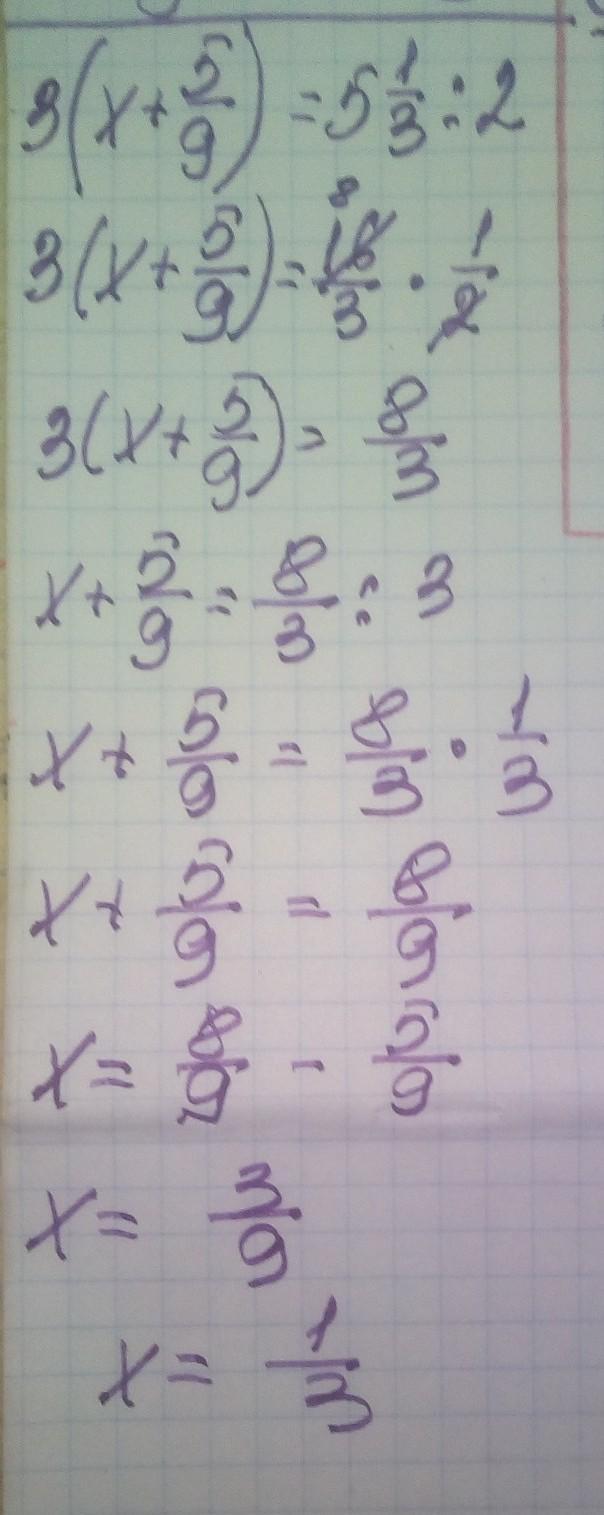 3(x+5/9)=5 1/3:2
3(x+5/9)=16/3·1/2 8
3(x+5/9)=8/3
x+5/9=8/3:3
x+5/9=8/3·1/3
x+5/9=8/9
x=8/9-5/9
x=3/9
x=1/3